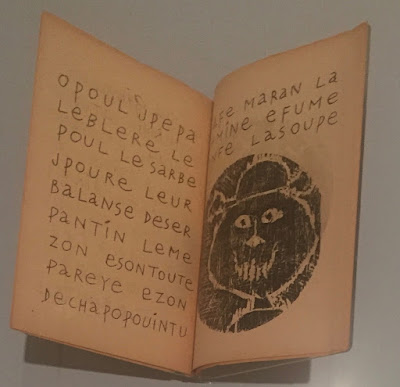 OPOUL JPEPA
LEBLERE LE
POUL LESARBE
JPOURE LEUR
BALANSE DESER
PANTIN LEME
ZON ESONTOUTE
PAREYE EZON
DECHAPOPOUINTU
FE MARAN LA
MINE EFUME
FE LASOUPE